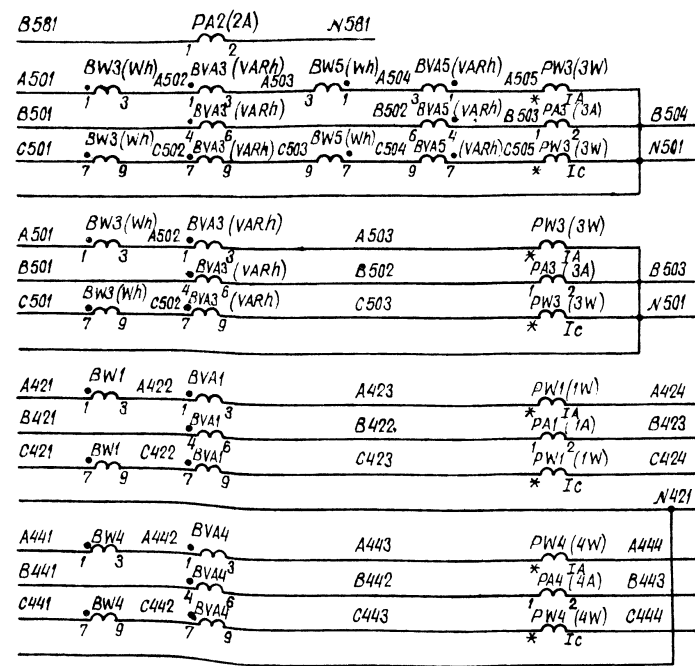 B581 PA2(2A) N581
1 2
A501 BW3(Wh) A502 BVA3(VARh) A503 BW5(Wh) A504 BVA5(VARh) A505 PW3(3W)
1 3 1 3 3 1 3 1 * IA
B501 BVA3(VARh) B502 BVA5(VARh) B503 PA3(3A) B504
4 6 6 4 1 2
C501 BW3(Wh) C502 BVA3(VARh) C503 BW5(Wh) C504 BVA5(VARh) C505 PW3(3W) N501
7 9 7 9 9 7 9 7 * Ic
A501 BW3(Wh) A502 BVA3(VARh) A503 PW3(3W)
1 3 1 3 * IA
B501 BVA3(VARh) B502 PA3(3A) B503
4 6 1 2
C501 BW3(Wh) C502 BVA3(VARh) C503 PW3(3W) N501
7 9 7 9 * Ic
A421 BW1 A422 BVA1 A423 PW1(1W) A424
1 3 1 3 * IA
B421 BVA1 B422 PA1(1A) B423
4 6 1 2
C421 BW1 C422 BVA1 C423 PW1(1W) C424
7 9 7 9 * Ic
N421
A441 BW4 A442 BVA4 A443 PW4(4W) A444
1 3 1 3 * IA
B441 BVA4 B442 PA4(4A) B443
4 6 1 2
C441 BW4 C442 BVA4 C443 PW4(4W) C444
7 9 7 9 * Ic